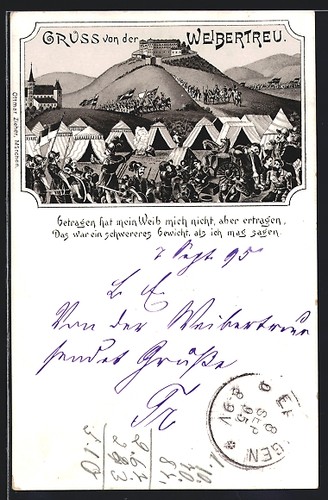 GRUSS von der WEIBERTREU.
Ottmar Zieher, München.
Getragen hat mein Weib mich nicht, aber ertragen,
Das war ein schwereres Gewicht, als ich mag sagen.
7 Sept. 95
L. E.
Von der Weibertreue
sendet Grüße
8 SEP 95